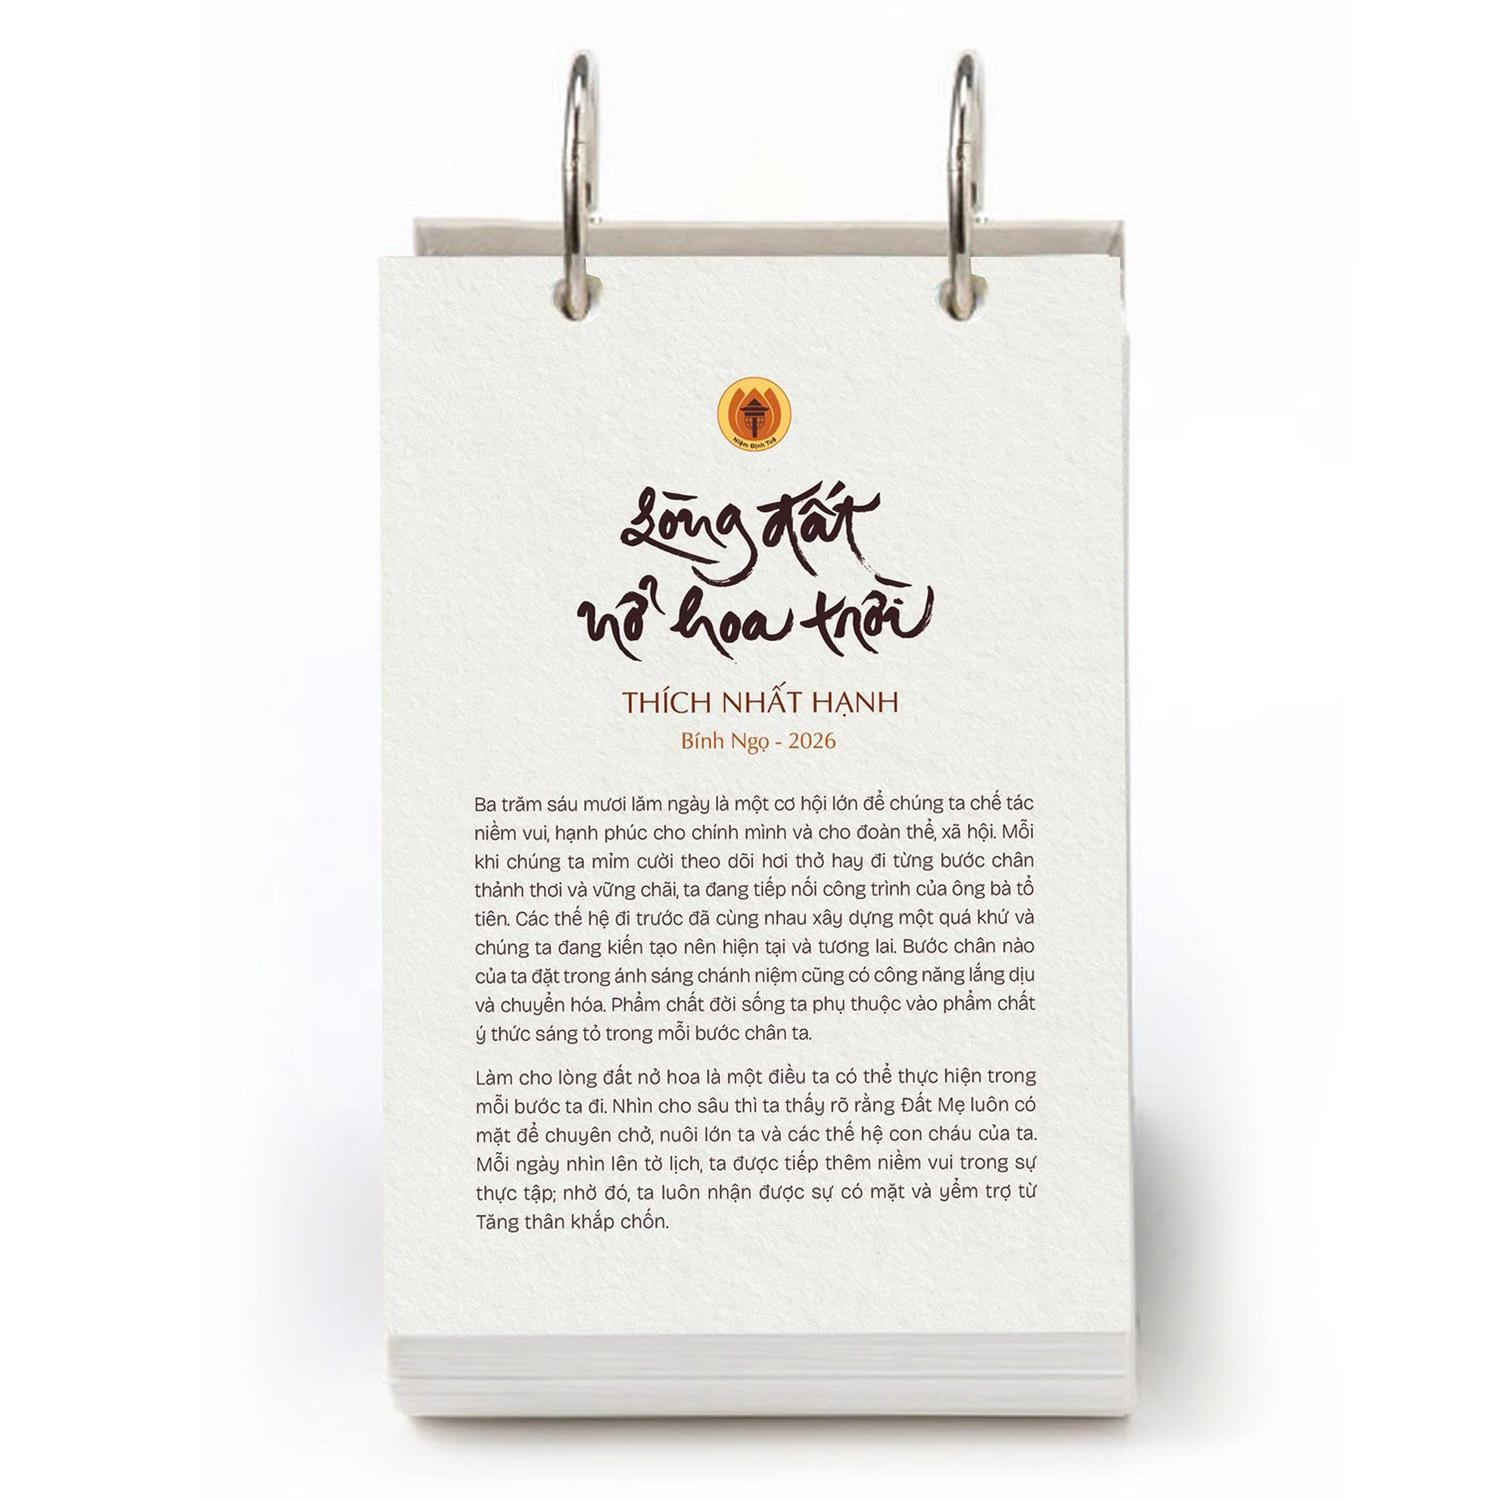 Niệm Định Tuệ
Lòng đất
nở hoa trời
THÍCH NHẤT HẠNH
Bính Ngọ - 2026
Ba trăm sáu mươi lăm ngày là một cơ hội lớn để chúng ta chế tác
niềm vui, hạnh phúc cho chính mình và cho đoàn thể, xã hội. Mỗi
khi chúng ta mỉm cười theo dõi hơi thở hay đi từng bước chân
thảnh thơi và vững chãi, ta đang tiếp nối công trình của ông bà tổ
tiên. Các thế hệ đi trước đã cùng nhau xây dựng một quá khứ và
chúng ta đang kiến tạo nên hiện tại và tương lai. Bước chân nào
của ta đặt trong ánh sáng chánh niệm cũng có công năng lắng dịu
và chuyển hóa. Phẩm chất đời sống ta phụ thuộc vào phẩm chất
ý thức sáng tỏ trong mỗi bước chân ta.
Làm cho lòng đất nở hoa là một điều ta có thể thực hiện trong
mỗi bước ta đi. Nhìn cho sâu thì ta thấy rõ rằng Đất Mẹ luôn có
mặt để chuyên chở, nuôi lớn ta và các thế hệ con cháu của ta.
Mỗi ngày nhìn lên tờ lịch, ta được tiếp thêm niềm vui trong sự
thực tập; nhờ đó, ta luôn nhận được sự có mặt và yểm trợ từ
Tăng thân khắp chốn.